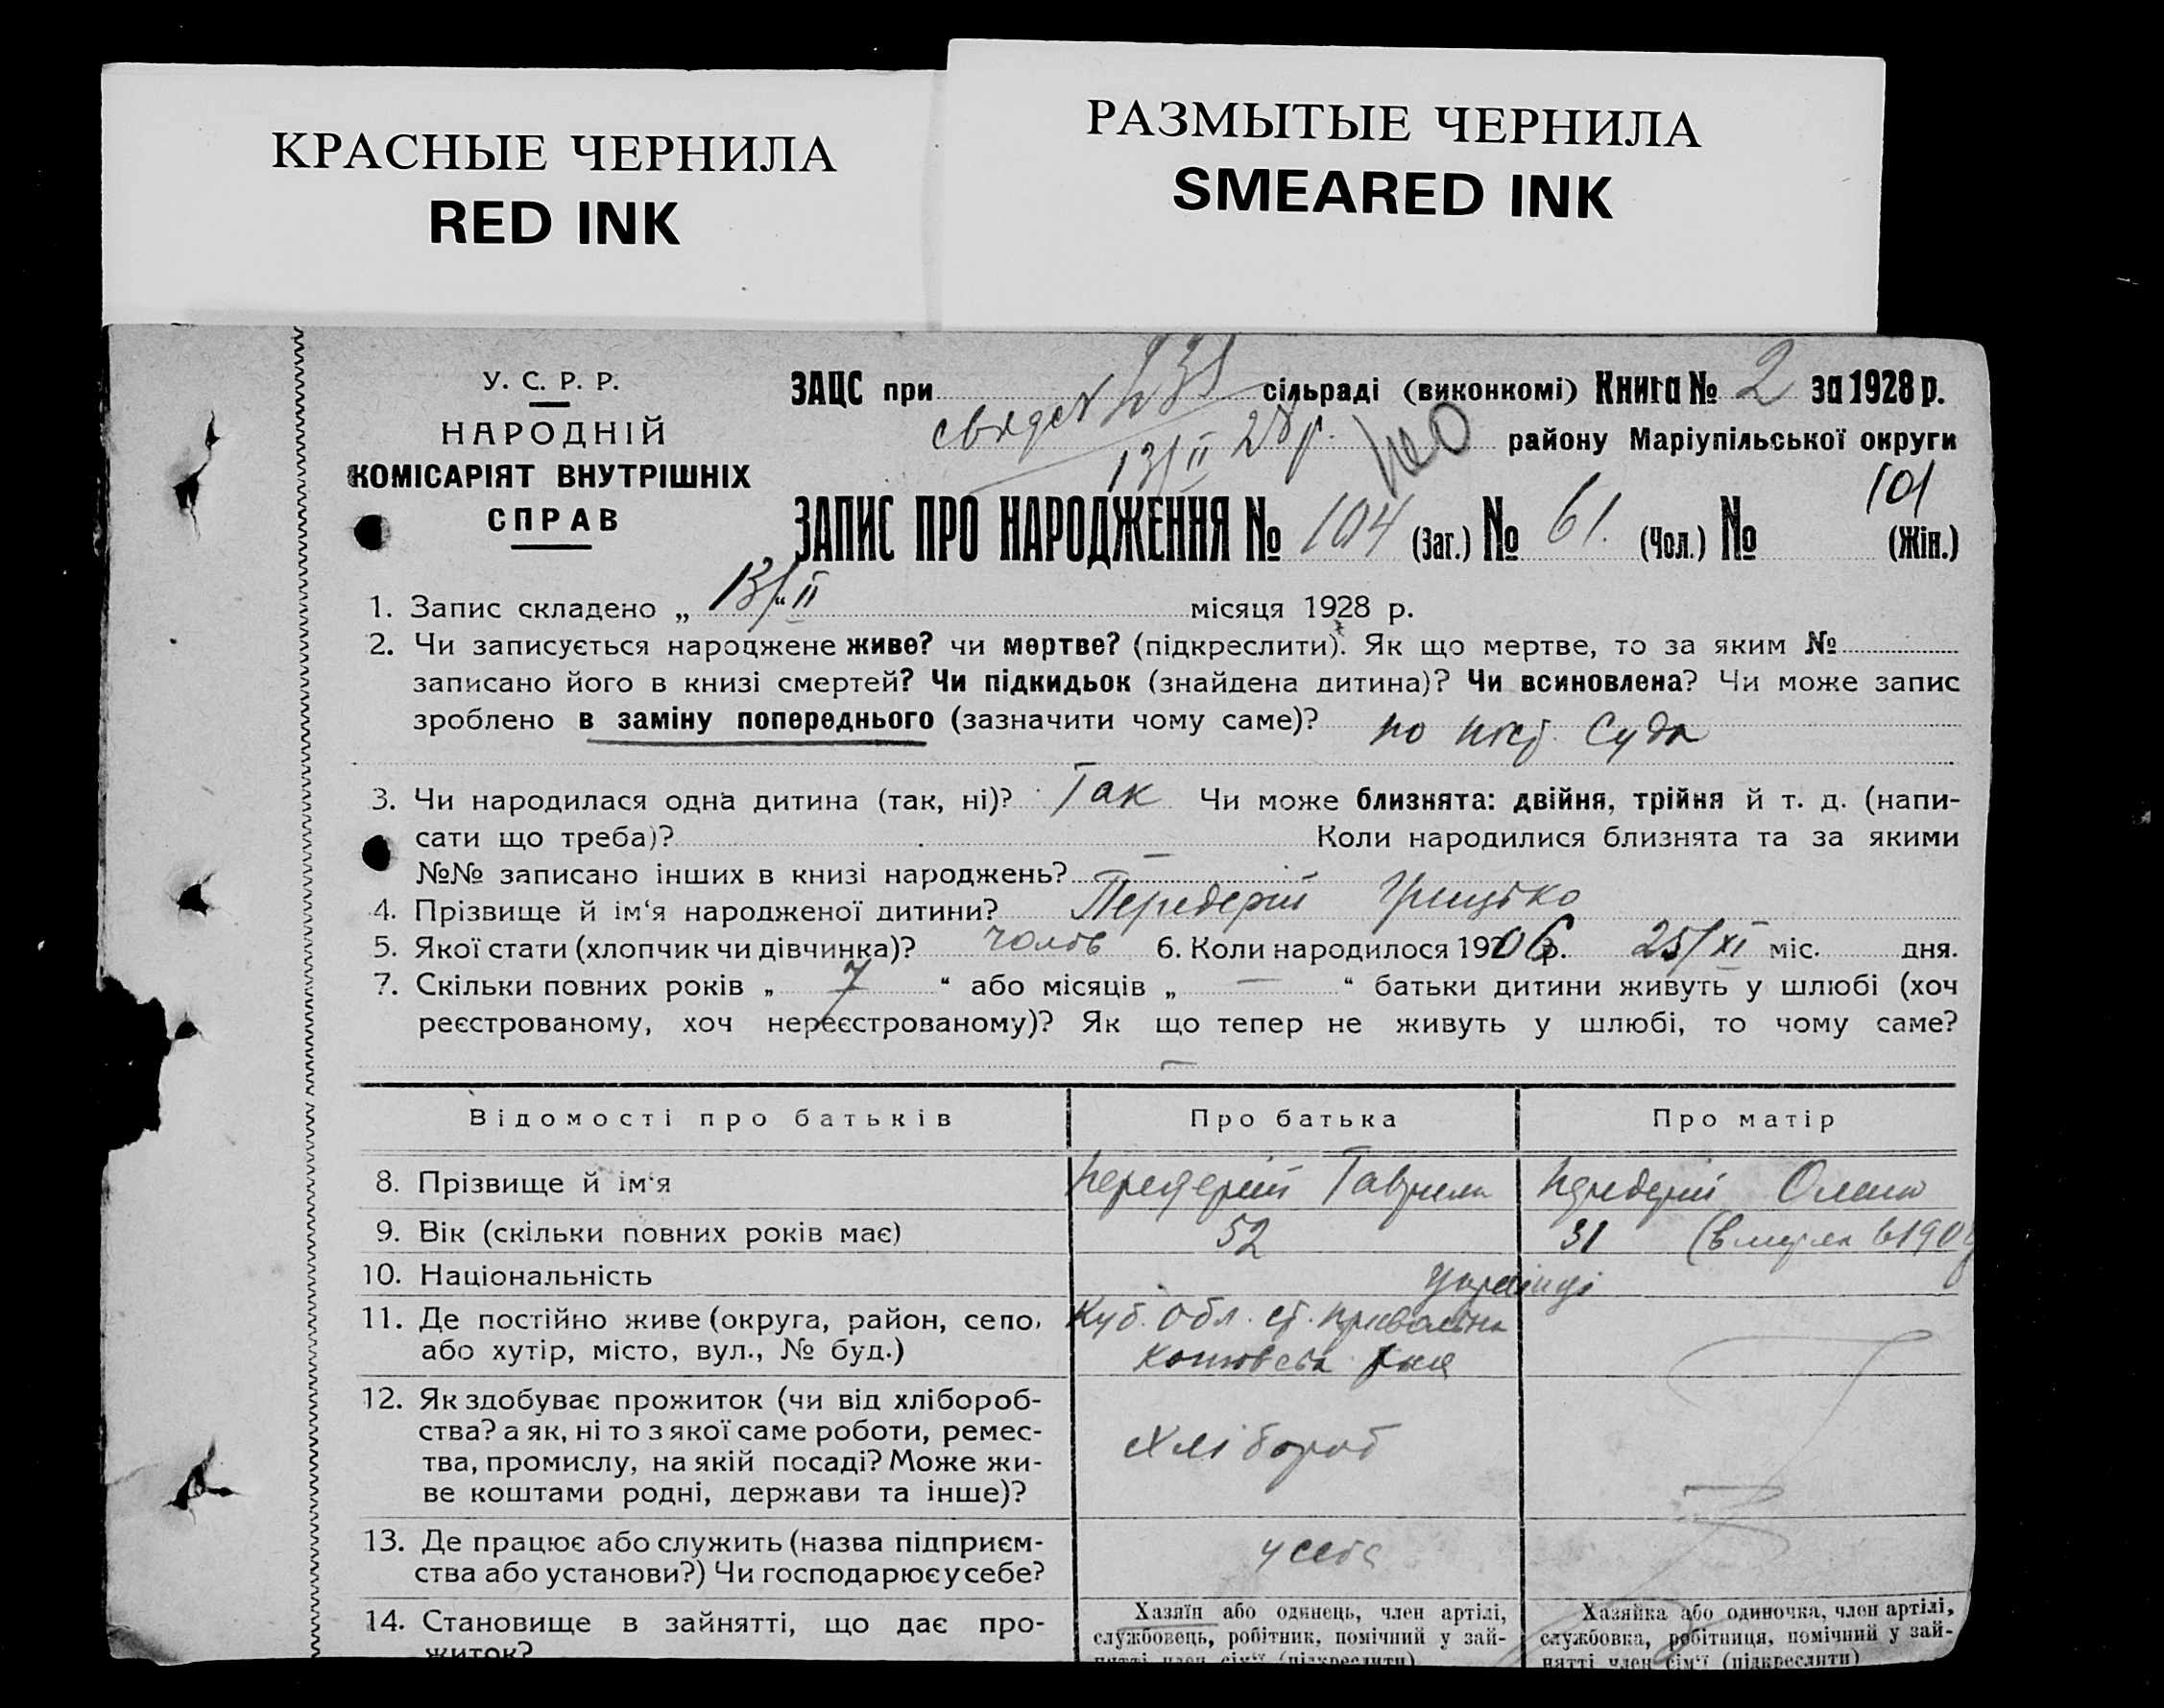 КРАСНЫЕ ЧЕРНИЛА
RED INK
РАЗМЫТЫЕ ЧЕРНИЛА
SMEARED INK
У. С. Р. Р.
НАРОДНІЙ
КОМІСАРІЯТ ВНУТРІШНІХ
СПРАВ
ЗАЦС при сільраді (виконкомі) Книга № 2 за 1928 р.
13/II 28 р. району Маріупільської округи
101
ЗАПИС ПРО НАРОДЖЕННЯ № 104 (Заг.) № 61. (Чол.) № (Жін.)
1. Запис складено „ 13/II “ місяця 1928 р.
2. Чи записується народжене живе? чи мертве? (підкреслити). Як що мертве, то за яким №
записано його в книзі смертей? Чи підкидьок (знайдена дитина)? Чи всиновлена? Чи може запис
зроблено в заміну попереднього (зазначити чому саме)? по пост. Суда
3. Чи народилася одна дитина (так, ні)? Так Чи може близнята: двійня, трійня й т. д. (напи-
сати що треба)? Коли народилися близнята та за якими
№№ записано інших в книзі народжень? —
4. Прізвище й ім‘я народженої дитини? Передерій Грицько
5. Якої стати (хлопчик чи дівчинка)? чолов 6. Коли народилося 1906 р. 25/XI міс. дня.
7. Скільки повних років „ 7 “ або місяців „ — “ батьки дитини живуть у шлюбі (хоч
реєстрованому, хоч нереєстрованому)? Як що тепер не живуть у шлюбі, то чому саме?
—
Відомості про батьків Про батька Про матір
8. Прізвище й ім‘я Передерій Гаврило Передерій Олена
9. Вік (скільки повних років має) 52 31
10. Національність Українці
11. Де постійно живе (округа, район, село, Куб. обл. ст. Привольна
або хутір, місто, вул., № буд.)
12. Як здобуває прожиток (чи від хлібороб-
ства? а як, ні то з якої саме роботи, ремес-
тва, промислу, на якій посаді? Може жи-
ве коштами родні, держави та інше)? Хлібороб
13. Де працює або служить (назва підприєм-
ства або установи?) Чи господарює у себе? у себе
14. Становище в зайнятті, що дає про-
житок?
Хазяїн або одинець, член артілі,
службовець, робітник, помічний у зай-
нятті член сім‘ї (підкреслити)
Хазяйка або одиночка, член артілі,
службовка, робітниця, помічний у зай-
нятті член сім‘ї (підкреслити)